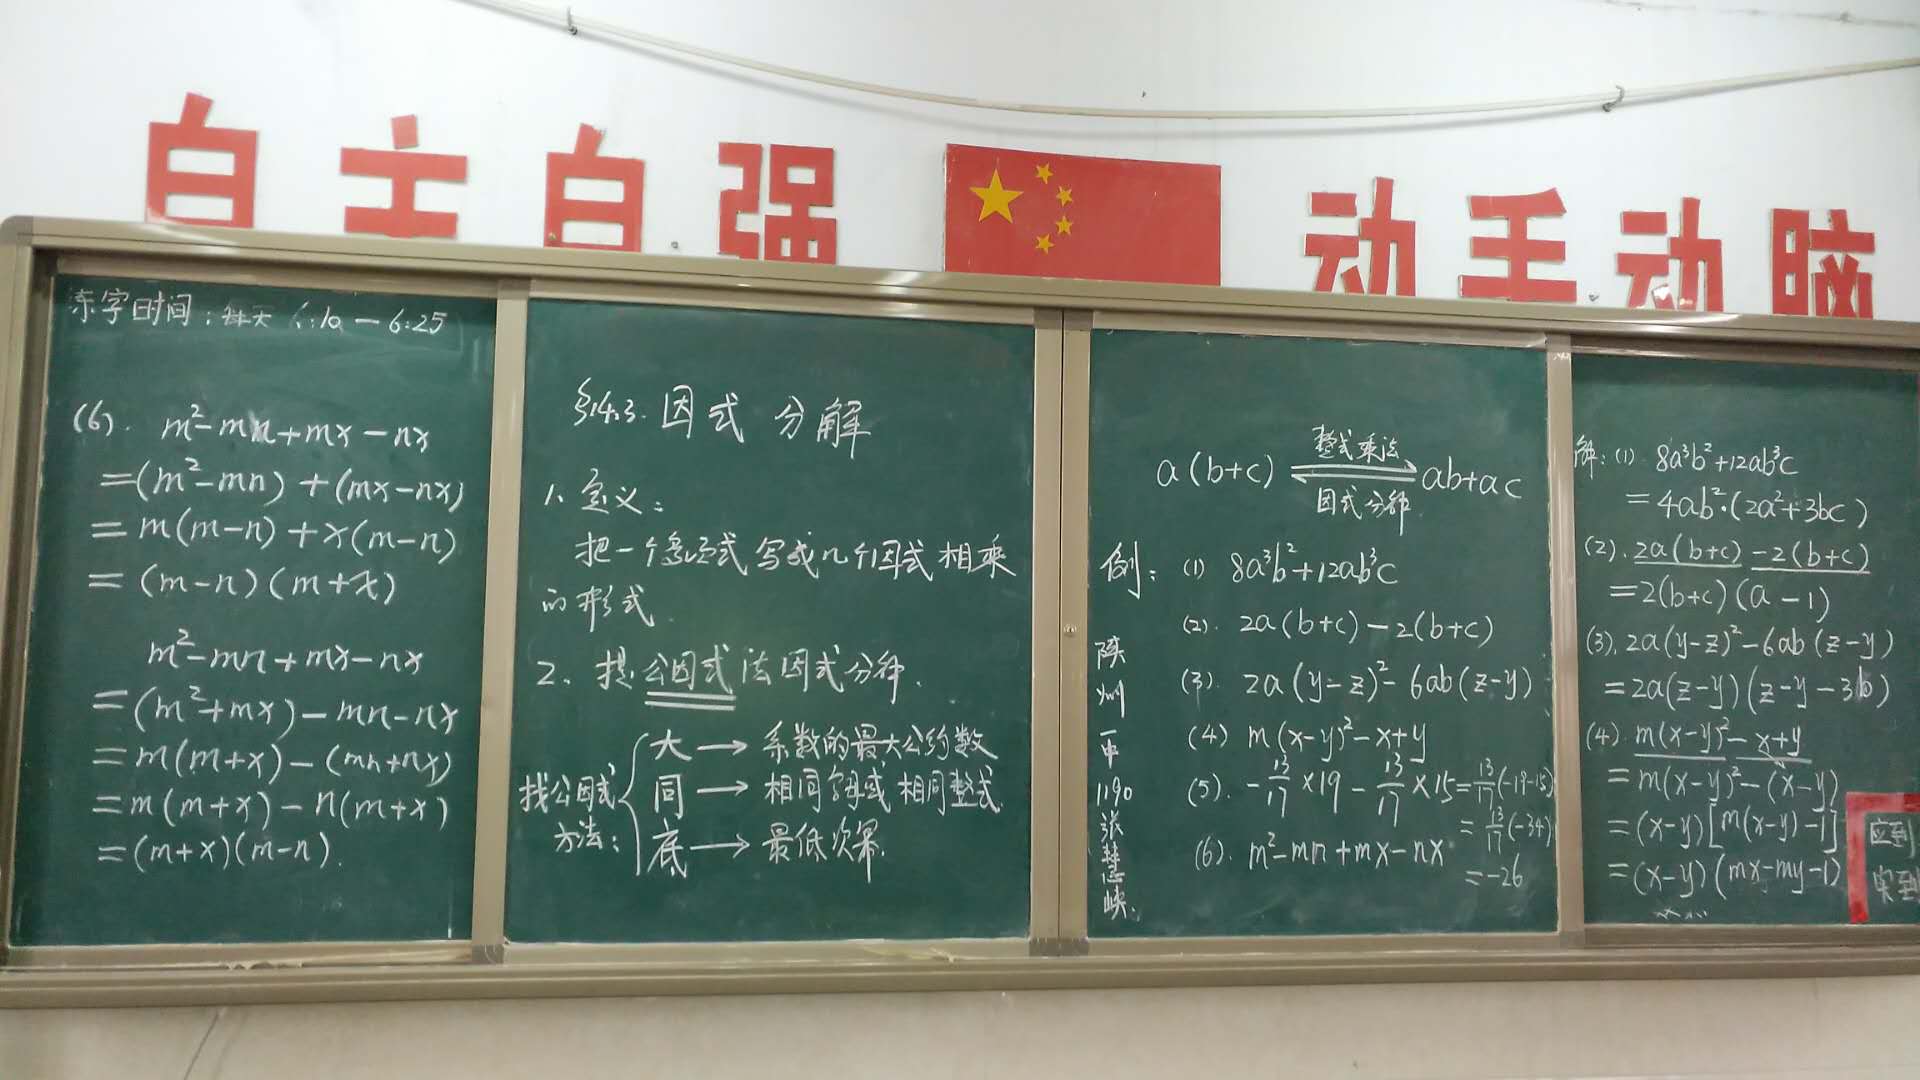 自主自强
动手动脑
练字时间：每天 6:10 — 6:25
(6). m²-mn+mx-nx
=(m²-mn)+(mx-nx)
=m(m-n)+x(m-n)
=(m-n)(m+x)
m²-mn+mx-nx
=(m²+mx)-mn-nx
=m(m+x)-(mn+nx)
=m(m+x)-n(m+x)
=(m+x)(m-n).
§14.3. 因式分解
1. 定义：
把一个多项式写成几个因式相乘
的形式.
2. 提公因式法因式分解.
找公因式方法：
大→系数的最大公约数
同→相同字母或相同整式
底→最低次幂.
整式乘法
a(b+c) ⇌ ab+ac
因式分解
例：(1) 8a³b²+12ab³c
(2). 2a(b+c)-2(b+c)
(3). 2a(y-z)²-6ab(z-y)
(4) m(x-y)²-x+y
(5). -13/17×19-13/17×15=13/17(-19-15)
=13/17(-34)
=-26
(6). m²-mn+mx-nx
陕州一中1190张慧峡.
解：(1) 8a³b²+12ab³c
=4ab²·(2a²+3bc)
(2). 2a(b+c)-2(b+c)
=2(b+c)(a-1)
(3). 2a(y-z)²-6ab(z-y)
=2a(z-y)(z-y-3b)
(4). m(x-y)²-x+y
=m(x-y)²-(x-y)
=(x-y)[m(x-y)-1]
=(x-y)(mx-my-1)
应到
实到